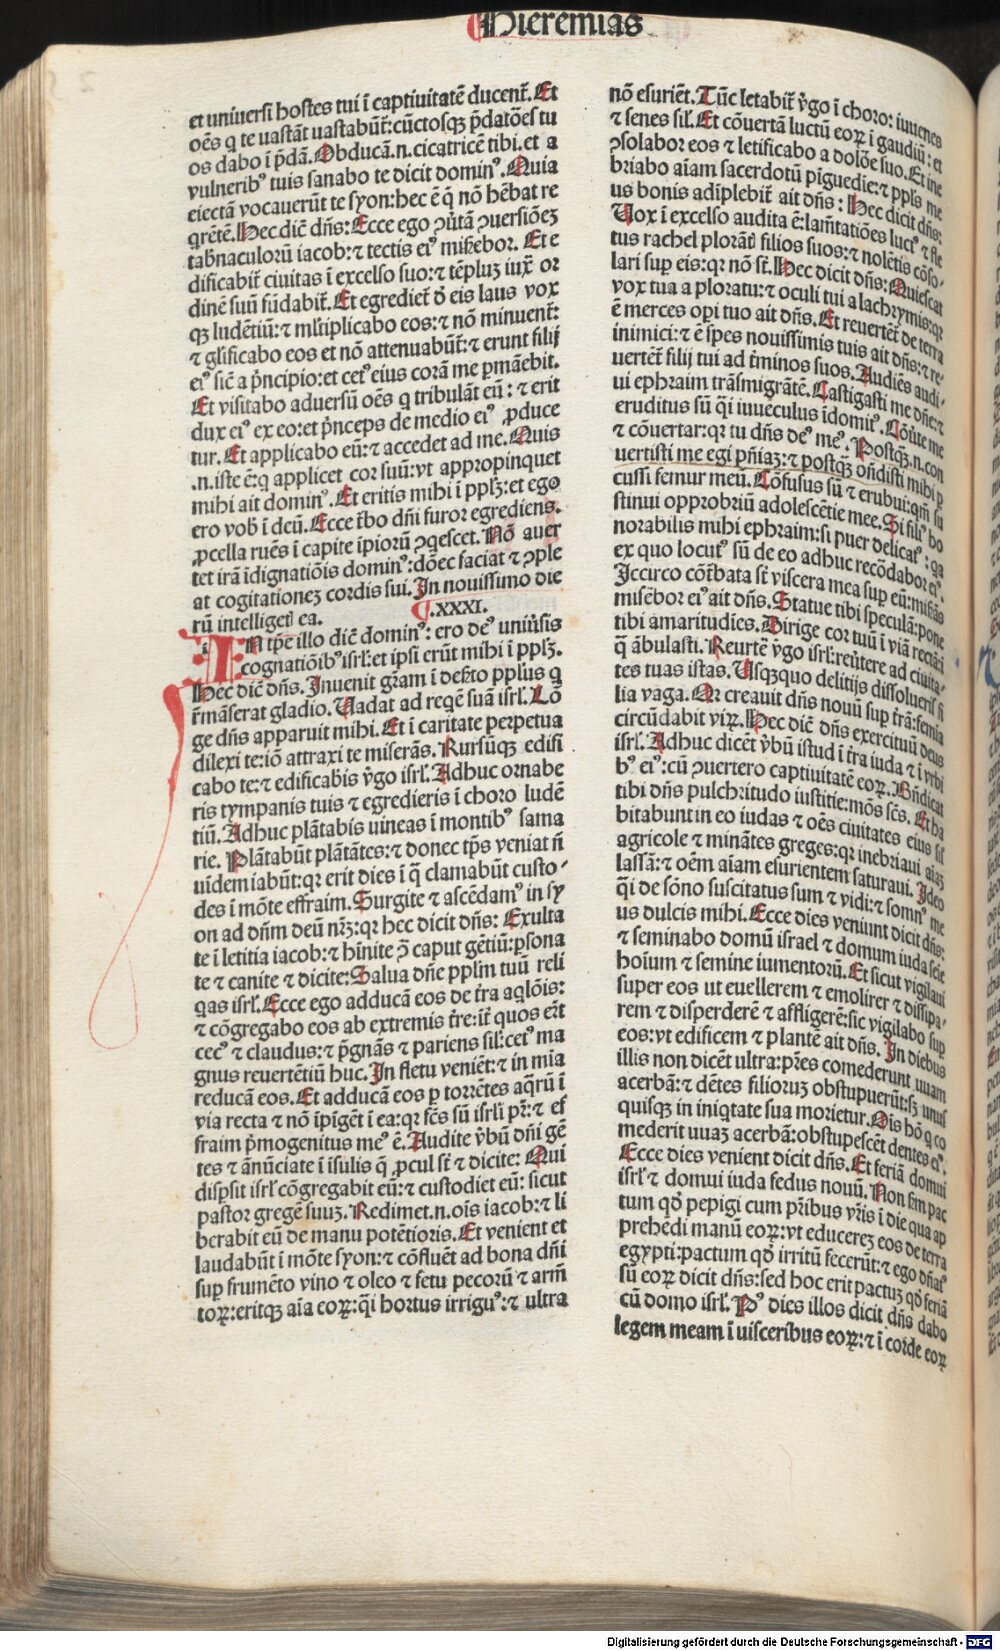 Hieremias
et universi hostes tui ī captiuitatē ducent᷑. Et
oēs q te vastāt uastabūt᷑: cūctosqꝫ p̄datōes tu
os dabo ī p̄dā. Obducā .n. cicatricē tibi. et a
vulneribꝰ tuis sanabo te dicit dominꝰ. Quia
eiectā vocauerūt te syon: hec ē q̄ nō hēbat re
q̄rētē. Hec dicē dn̄s: Ecce ego ꝯūtā ꝯuersiōeꝫ
tab̄naculorū iacob: ⁊ tectis eiꝰ mis̄ebor. Et e
dificabit᷑ ciuitas ī excelso suo: ⁊ tēpluꝫ iux̄ or
dinē suū fūdabit᷑. Et egrediet᷑ d̄ eis laus vox
qꝫ ludētiū: ⁊ ml̄tiplicabo eos: ⁊ nō minuent᷑:
⁊ gl̄ificabo eos et nō attenuabūt᷑: ⁊ erunt filij
eiꝰ sic̄ a p̄ncipio: et cetꝰ eius corā me ꝑmaēbit.
Et visitabo adversū oēs q tribulāt eū: ⁊ erit
dux eiꝰ ex eo: et p̄nceps de medio eiꝰ ꝓduce
tur. Et applicabo eū: ⁊ accedet ad me. Quis
.n. iste ē: q applicet cor suū: vt appropinquet
mihi ait dominꝰ. Et eritis mihi ī ppl̄ꝫ: et ego
ero vob̄ ī deū. Ecce t̄bo dn̄i furor egrediens.
ꝓcella ruēs ī capite īpiorū ꝯq̄escet. Nō auer
tet irā īdignatiōis dominꝰ: dōec faciat ⁊ ꝯple
at cogitationeꝫ cordis sui. In nouissimo die
rū intelligetꝭ ea. ¶ .XXXI.
IN tp̄e illo dic̄ dominꝰ: ero deꝰ uniūsis
cognatiōibꝰ isrl̄: et ipsi erūt mihi ī ppl̄ꝫ.
Hec dic̄ dn̄s. Inuenit gr̄am ī def̄to ppl̄us q
r̄māserat gladio. Vadat ad reqē suā isrl̄. Lō
ge dn̄s apparuit mihi. Et ī caritate perpetua
dilexi te: iō attraxi te miserās. Rursūqꝫ edifi
cabo te: ⁊ edificabis v̄go isrl̄. Adhuc ornabe
ris tympanis tuis ⁊ egredieris ī choro ludē
tiū. Adhuc plātabis uineas ī montibꝰ sama
rie. Plātabūt plātātes: ⁊ donec tp̄s veniat n̄
uīdemiabūt: qꝛ erit dies ī q̄ clamabūt custo-
des ī mōte effraim. Surgite ⁊ ascēdamꝰ in sy
on ad dn̄m deū nr̄ꝫ: qꝛ hec dicit dn̄s: Exulta
te ī letitia iacob: ⁊ hīnite ꝯ̄ caput gētiū: ꝑsona
te ⁊ canite ⁊ dicite: Salua dn̄e ppl̄m tuū reli
qas isrl̄. Ecce ego adducā eos de t̄ra aq̄lōis:
⁊ cōgregabo eos ab extremis t̄re: īt᷑ quos er̄t
cecꝰ ⁊ claudus: ⁊ p̄gnās ⁊ pariens sil̄: cetꝰ ma
gnus revertētiū huc. In fletu veniēt: ⁊ in mīa
reducā eos. Et adducā eos ꝑ torrētes aq̄rū ī
via recta ⁊ nō īpīgēt ī ea: qꝛ fc̄s sū isrl̄i pr̄: ⁊ ef
fraim p̄mogenitus meꝰ ē. Audite v̄bū dn̄i gē
tes ⁊ ānūciate ī isulis q̄ ꝓcul st̄ ⁊ dicite: Qui
disꝑsit isrl̄ cōgregabit eū: ⁊ custodiet eū: sicut
pastor gregē suuꝫ. Redimet .n. ois iacob: ⁊ li
berabit eū de manu potētioris. Et venient et
laudabūt ī mōte syon: ⁊ cōfluēt ad bona dn̄i
suꝑ frumēto vino ⁊ oleo ⁊ fetu pecorū ⁊ arm̄
toꝝ: eritqꝫ aīa eoꝝ: q̄i hortus irriguꝰ: ⁊ ultra
nō esuriēt. Tūc letabit᷑ v̄go ī choro: iuuenes
⁊ senes sil̄. Et cōuertā luctū eoꝝ ī gaudiū: et
ꝯsolabor eos ⁊ letificabo a dolōe suo. Et ine
briabo aīam sacerdotū pīguedīe: ⁊ ppl̄s me
us bonis adīplebit᷑ ait dn̄s: Hec dicit dn̄s:
Vox ī excelso audita ē: lam̄tatiōes lucꝰ ⁊ fle
tus rachel plorātꝭ filios suos: ⁊ nolētis cōso-
lari suꝑ eis: qꝛ nō st̄. Hec dicit dn̄s: Quiescat
vox tua a ploratu: ⁊ oculi tui a lachrymis: qꝛ
ē merces oꝑi tuo ait dn̄s. Et reuertēt᷑ de terra
inimici: ⁊ ē spes novissimis tuis ait dn̄s: ⁊ re-
uertēt᷑ filij tui ad t̄minos suos. Audiēs audi-
ui ephraim trāsmigrātē. Castigasti me dn̄e: ⁊
eruditus sū q̄i iuuēculus īdomitꝰ. Cōūte me
⁊ cōuertar: qꝛ tu dn̄s deꝰ meꝰ. Postqꝫ .n. con
uertisti me egi pn̄iaꝫ: ⁊ postqꝫ on̄disti mihi ꝑ
cussi femur meū. Cōfusus sū ⁊ erubui: qm̄ su
stinui opprobriū adolescētie mee. Si filiꝰ ho
norabilis mihi ephraim: si puer delicatꝰ: qa
ex quo locutꝰ sū de eo adhuc recōdabor eiꝰ.
Iccirco cōt̄bata st̄ viscera mea suꝑ eū: misāas
misēbor eiꝰ ait dn̄s. Statue tibi speculā: pone
tibi amaritudīes. Dirige cor tuū ī viā rectā: ī
q̄ ābulasti. Reūtē v̄go isrl̄: reūtere ad ciuita-
tes tuas istas. Usqꝫquo delitijs dissoluerꝭ fi
lia vaga. Qꝛ creauit dn̄s nouū suꝑ t̄rā: femia
circūdabit viꝝ. Hec dic̄ dn̄s exercituū deus
isrl̄. Adhuc dicēt v̄bū istud ī t̄ra iuda ⁊ ī vrbi
bꝰ eiꝰ: cū ꝯuertero captiuitatē eoꝝ. Bn̄dicat
tibi dn̄s pulchritudo iustitie: mōs sc̄s. Et ha
bitabunt in eo iudas ⁊ oēs ciuitates eius sil̄
agricole ⁊ minātes greges: qꝛ inebriaui aīaꝫ
lassā: ⁊ oēm aīam esurientem saturaui. Ideo
q̄i de sōno suscitatus sum ⁊ vidi: ⁊ somnꝰ me
us dulcis mihi. Ecce dies veniunt dicit dn̄s:
⁊ seminabo domū israel ⁊ domum iuda sēie
hoīum ⁊ semine iumentorū. Et sicut vigilaui
super eos ut euellerem ⁊ emolirer ⁊ dissipa-
rem ⁊ disperderē ⁊ affligerē: sic vigilabo suꝑ
eos: vt edificem ⁊ plantē ait dn̄s. In diebus
illis non dicēt ultra: pr̄es comederunt uuam
acerbā: ⁊ dētes filioruꝫ obstupuerūt: sꝫ unus
quisqꝫ in iniqtate sua morietur. Ois hō q co
mederit uuaꝫ acerbā: obstupescēt dentes eiꝰ.
Ecce dies venient dicit dn̄s. Et feriā domui
isrl̄ ⁊ domui iuda fedus nouū. Non fm̄ pac
tum qd̄ pepigi cum pr̄ibus vr̄is ī die qua ap
prehēdi manū eoꝝ: vt educereꝫ eos de terra
egypti: pactum qd̄ irritū fecerūt: ⁊ ego dn̄atꝰ
sū eoꝝ dicit dn̄s: sed hoc erit pactuꝫ qd̄ feriā
cū domo isrl̄. Pꝰ dies illos dicit dn̄s dabo
legem meam ī uisceribus eoꝝ: ⁊ ī corde eoꝝ
Digitalisierung gefördert durch die Deutsche Forschungsgemeinschaft - DFG